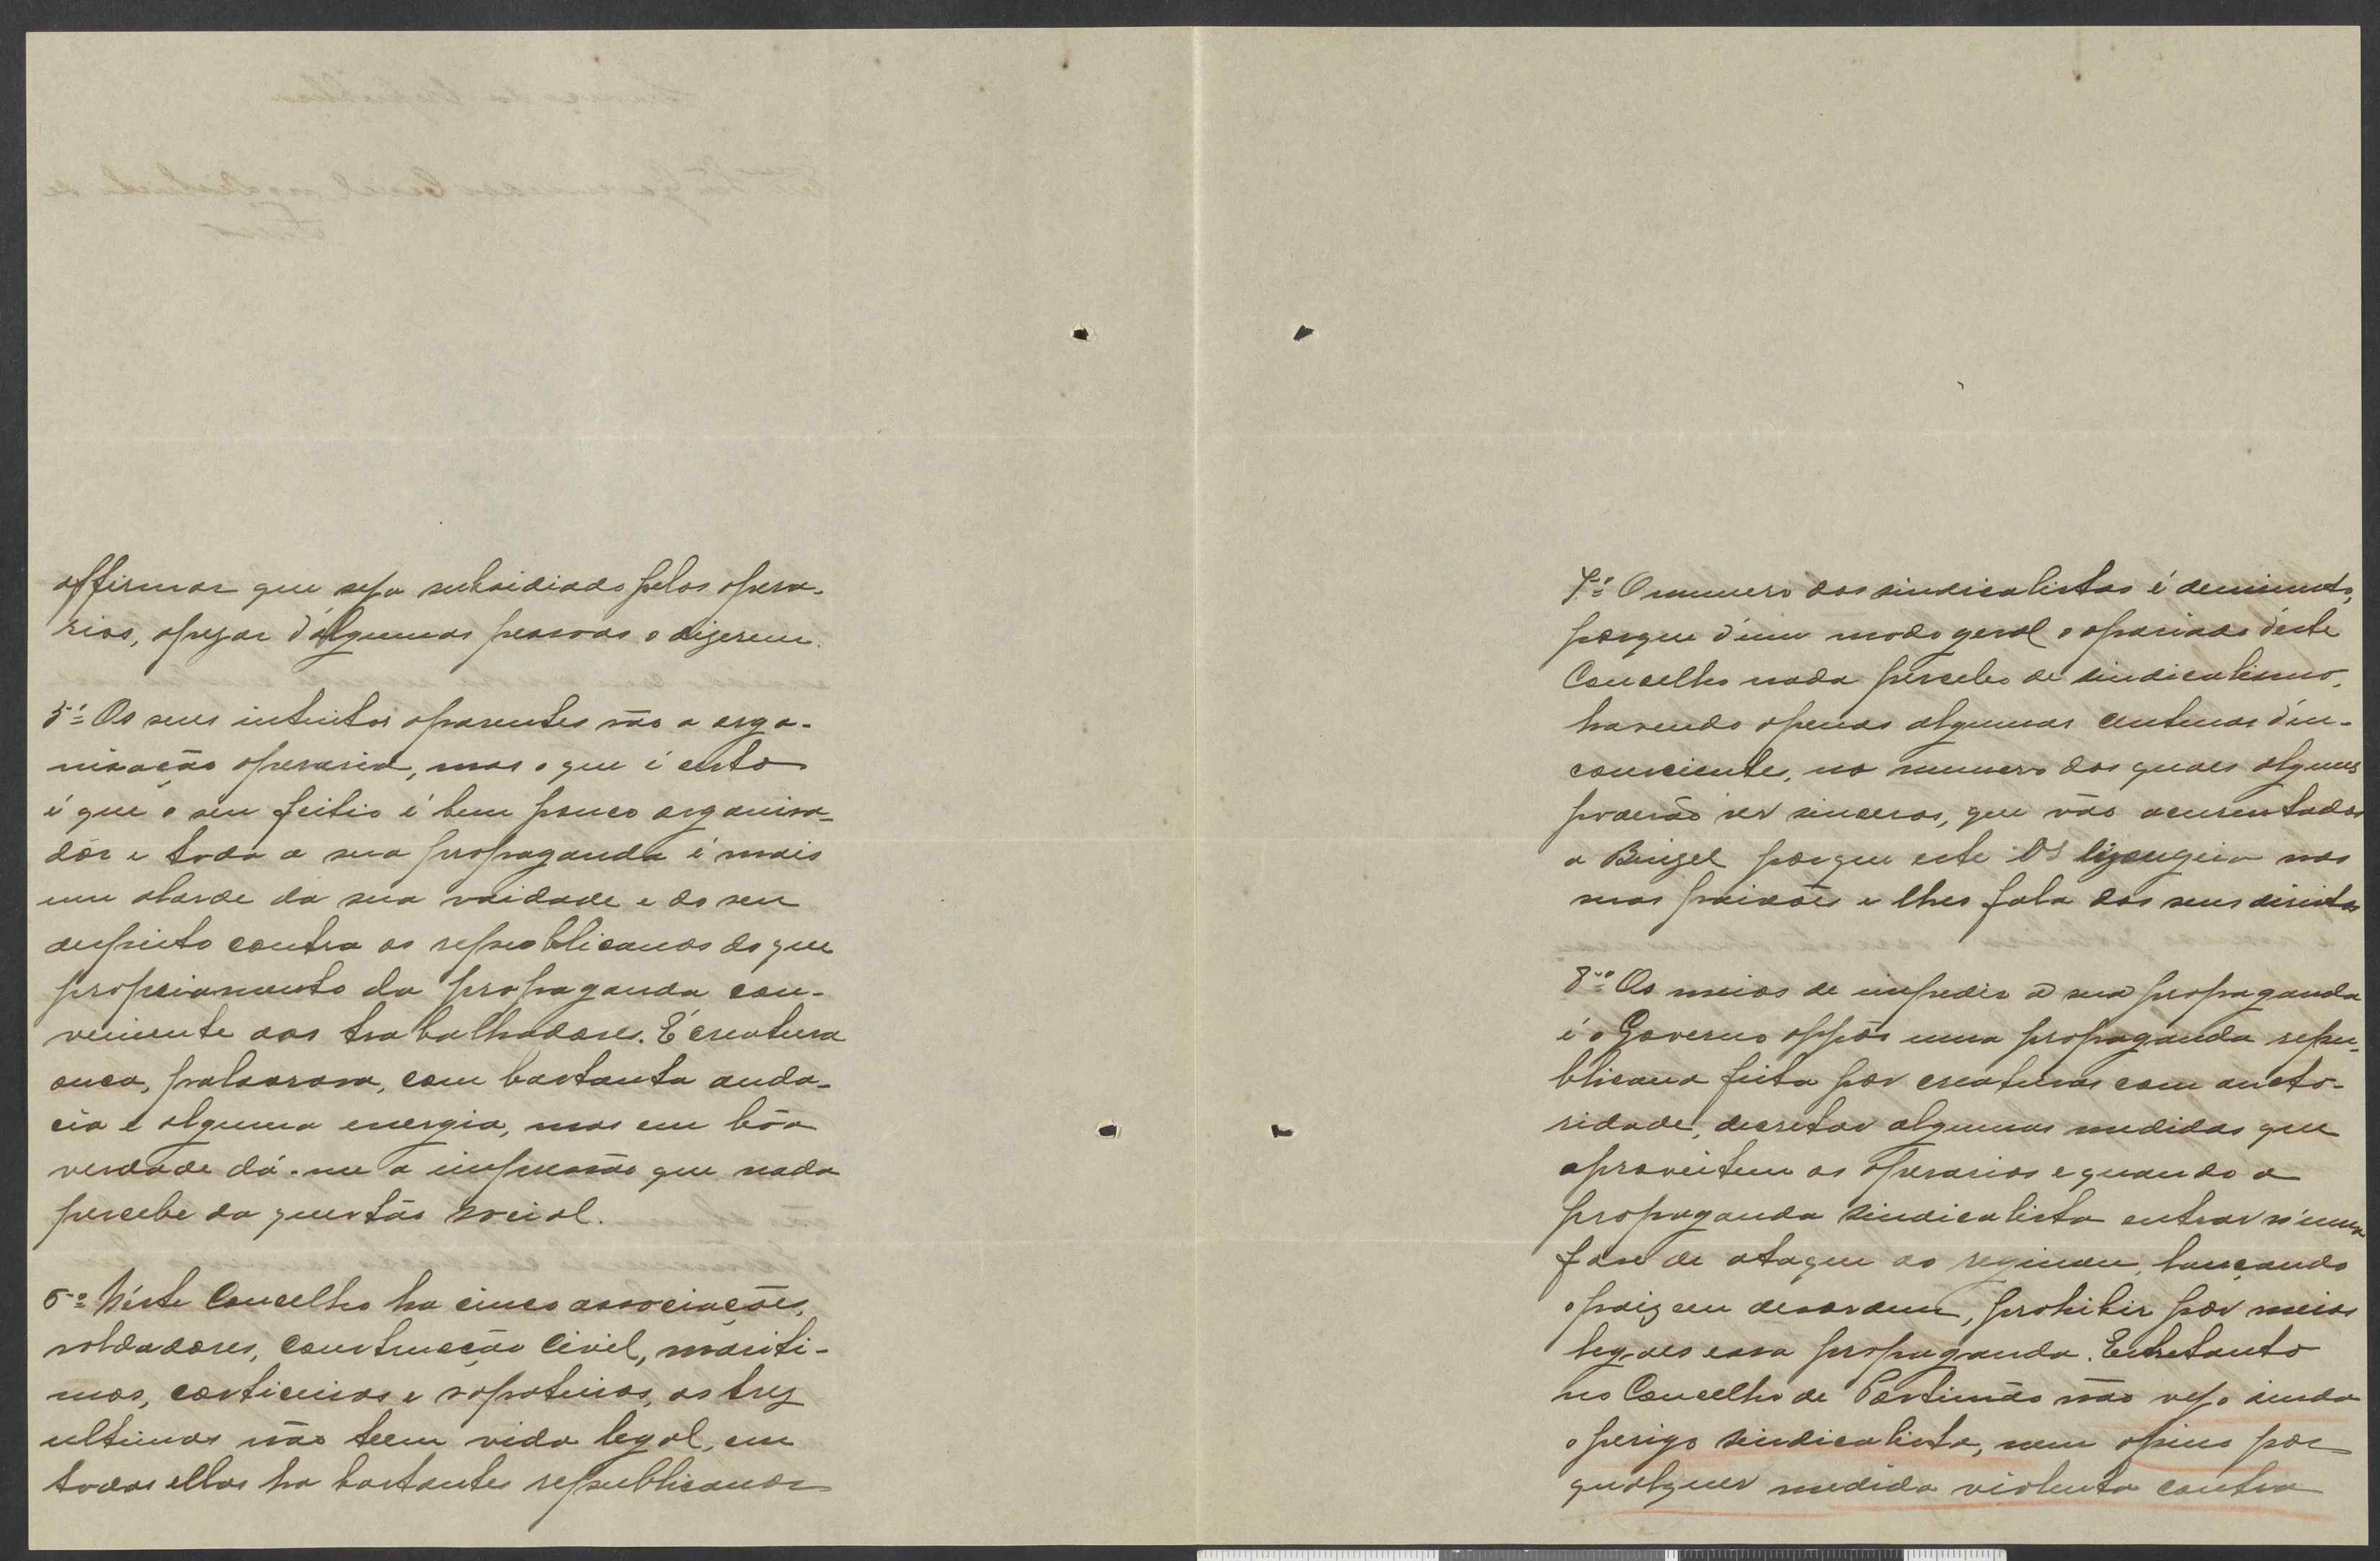 affirmar que seja subsidiado pelos opera-
rios, apezar d'algumas pessoas o dizerem.
5º Os seus intuitos aparentes são a orga-
nisação operaria, mas o que é certo
é que o seu feitio é bem pouco organisa-
dôr e toda a sua propaganda é mais
um alarde da sua vaidade e do seu
despeito contra os republicanos do que
propriamente da propaganda con-
veniente aos trabalhadores. É creatura
ouca, palavrosa, com bastante auda-
cia e alguma energia, mas em bôa
verdade dá-me a impressão que nada
percebe da questão social.
6º N'este Concelho ha cinco associações,
soldadores, construcção civil, mariti-
mos, corticeiros e sapateiros, as trez
ultimas não teem vida legal, em
todas ellas ha bastantes republicanos
7º O numero dos sindicalistas é deminuto,
porque d'um modo geral o operariado d'este
Concelho nada percebe de sindicalismo,
havendo apenas algumas centenas d'in-
consciente, no numero dos quaes alguns
poderão ser sinceros, que vão acorrentados
a Bengel porque este os lizongeia nas
suas paixões e lhes fala dos seus direitos
8º Os meios de impedir a sua propaganda
é o Governo oppôr uma propaganda repu-
blicana feita por creaturas com aucto-
ridade, decretar algumas medidas que
aproveitem os operarios e quando a
propaganda sindicalista entrar n'uma
fase de ataque ao regimen, lançando
o paiz em desordem, prohibir por meios
legaes essa propaganda. Entretanto
no Concelho de Portimão não vejo ainda
o perigo sindicalista, nem opino por
qualquer medida violenta contra